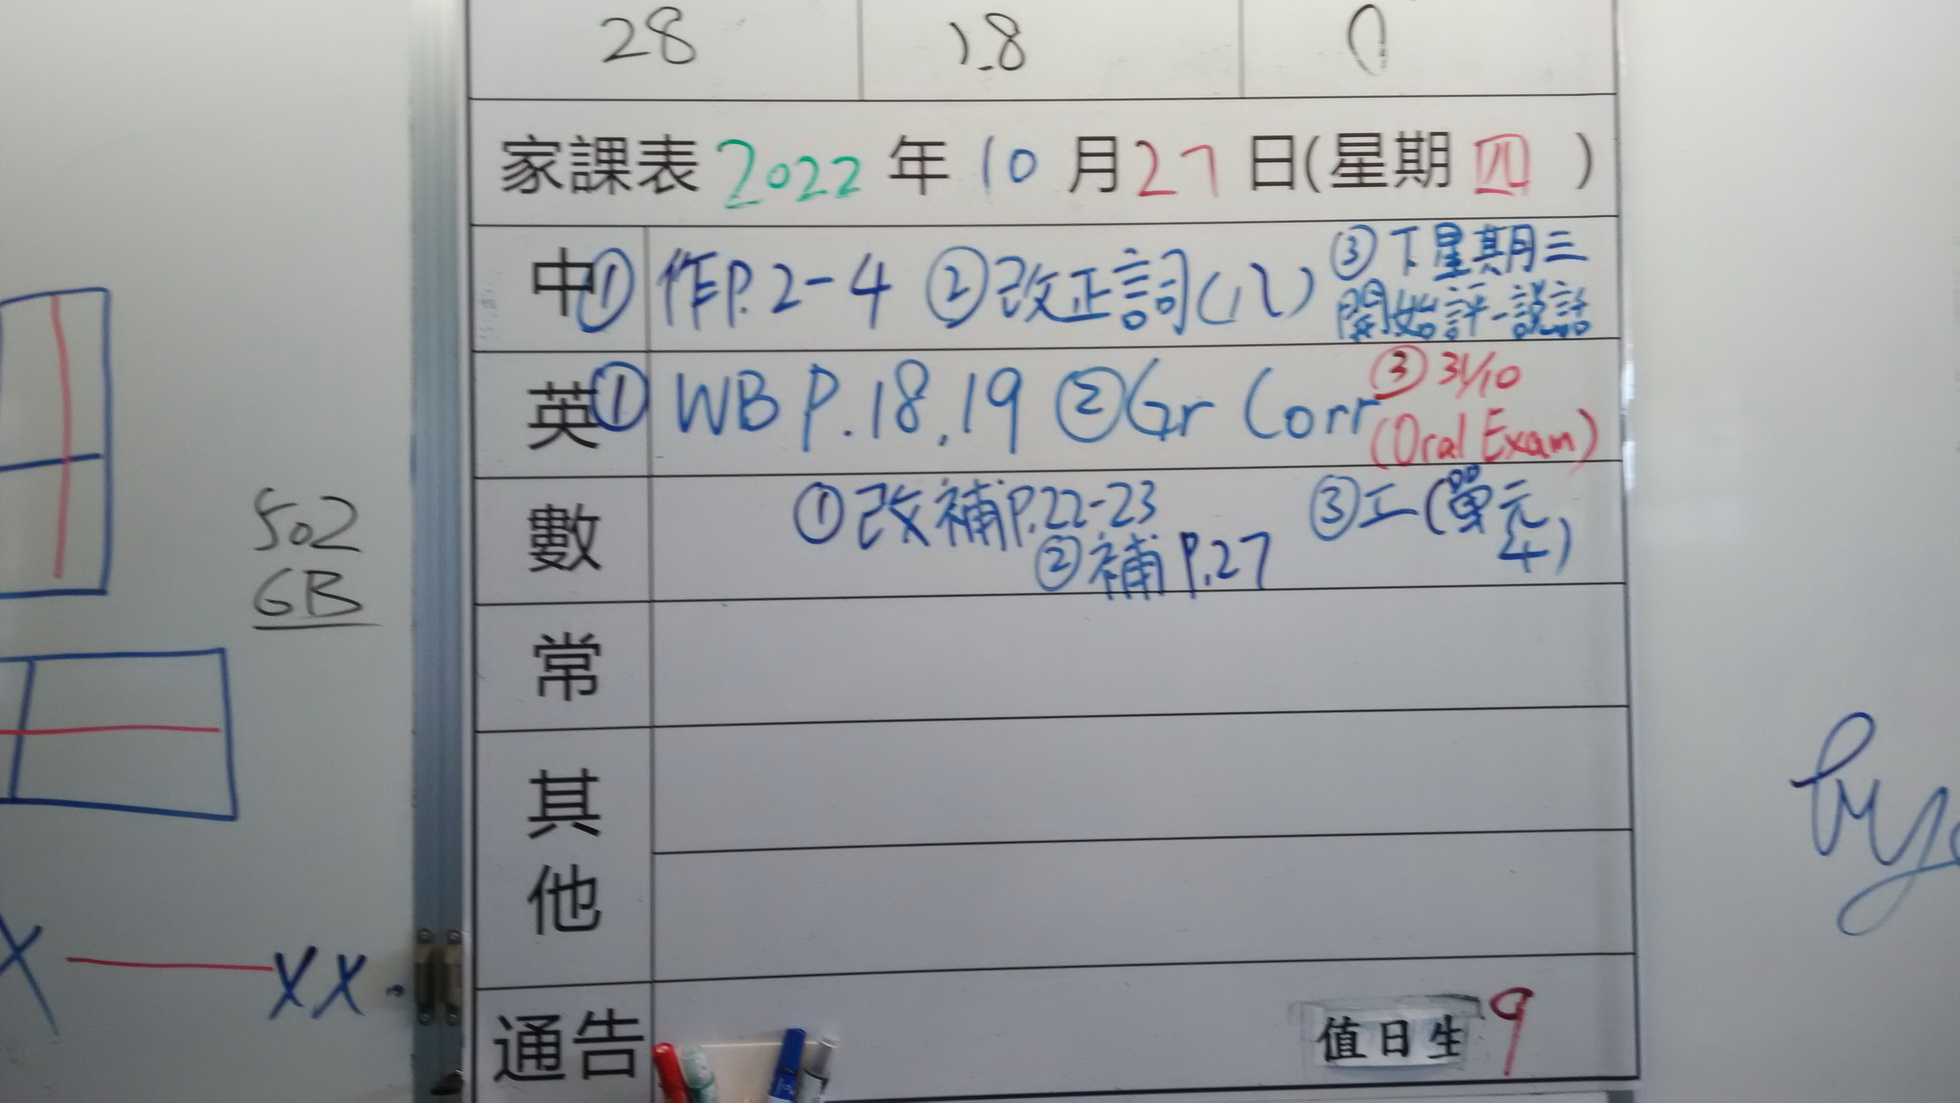 28 28 0
家課表 2022 年 10 月 27 日(星期 四 )
中 ① 作P.2-4 ②改正詞(八) ③下星期三
開始評-說話
英 ① WB P.18,19 ②Gr Corr ③ 31/10
(Oral Exam)
數 ①改補P.22-23 ③工(單元
4)
②補P.27
常
其
他
通告
值日生 9
502
GB
X — XX.